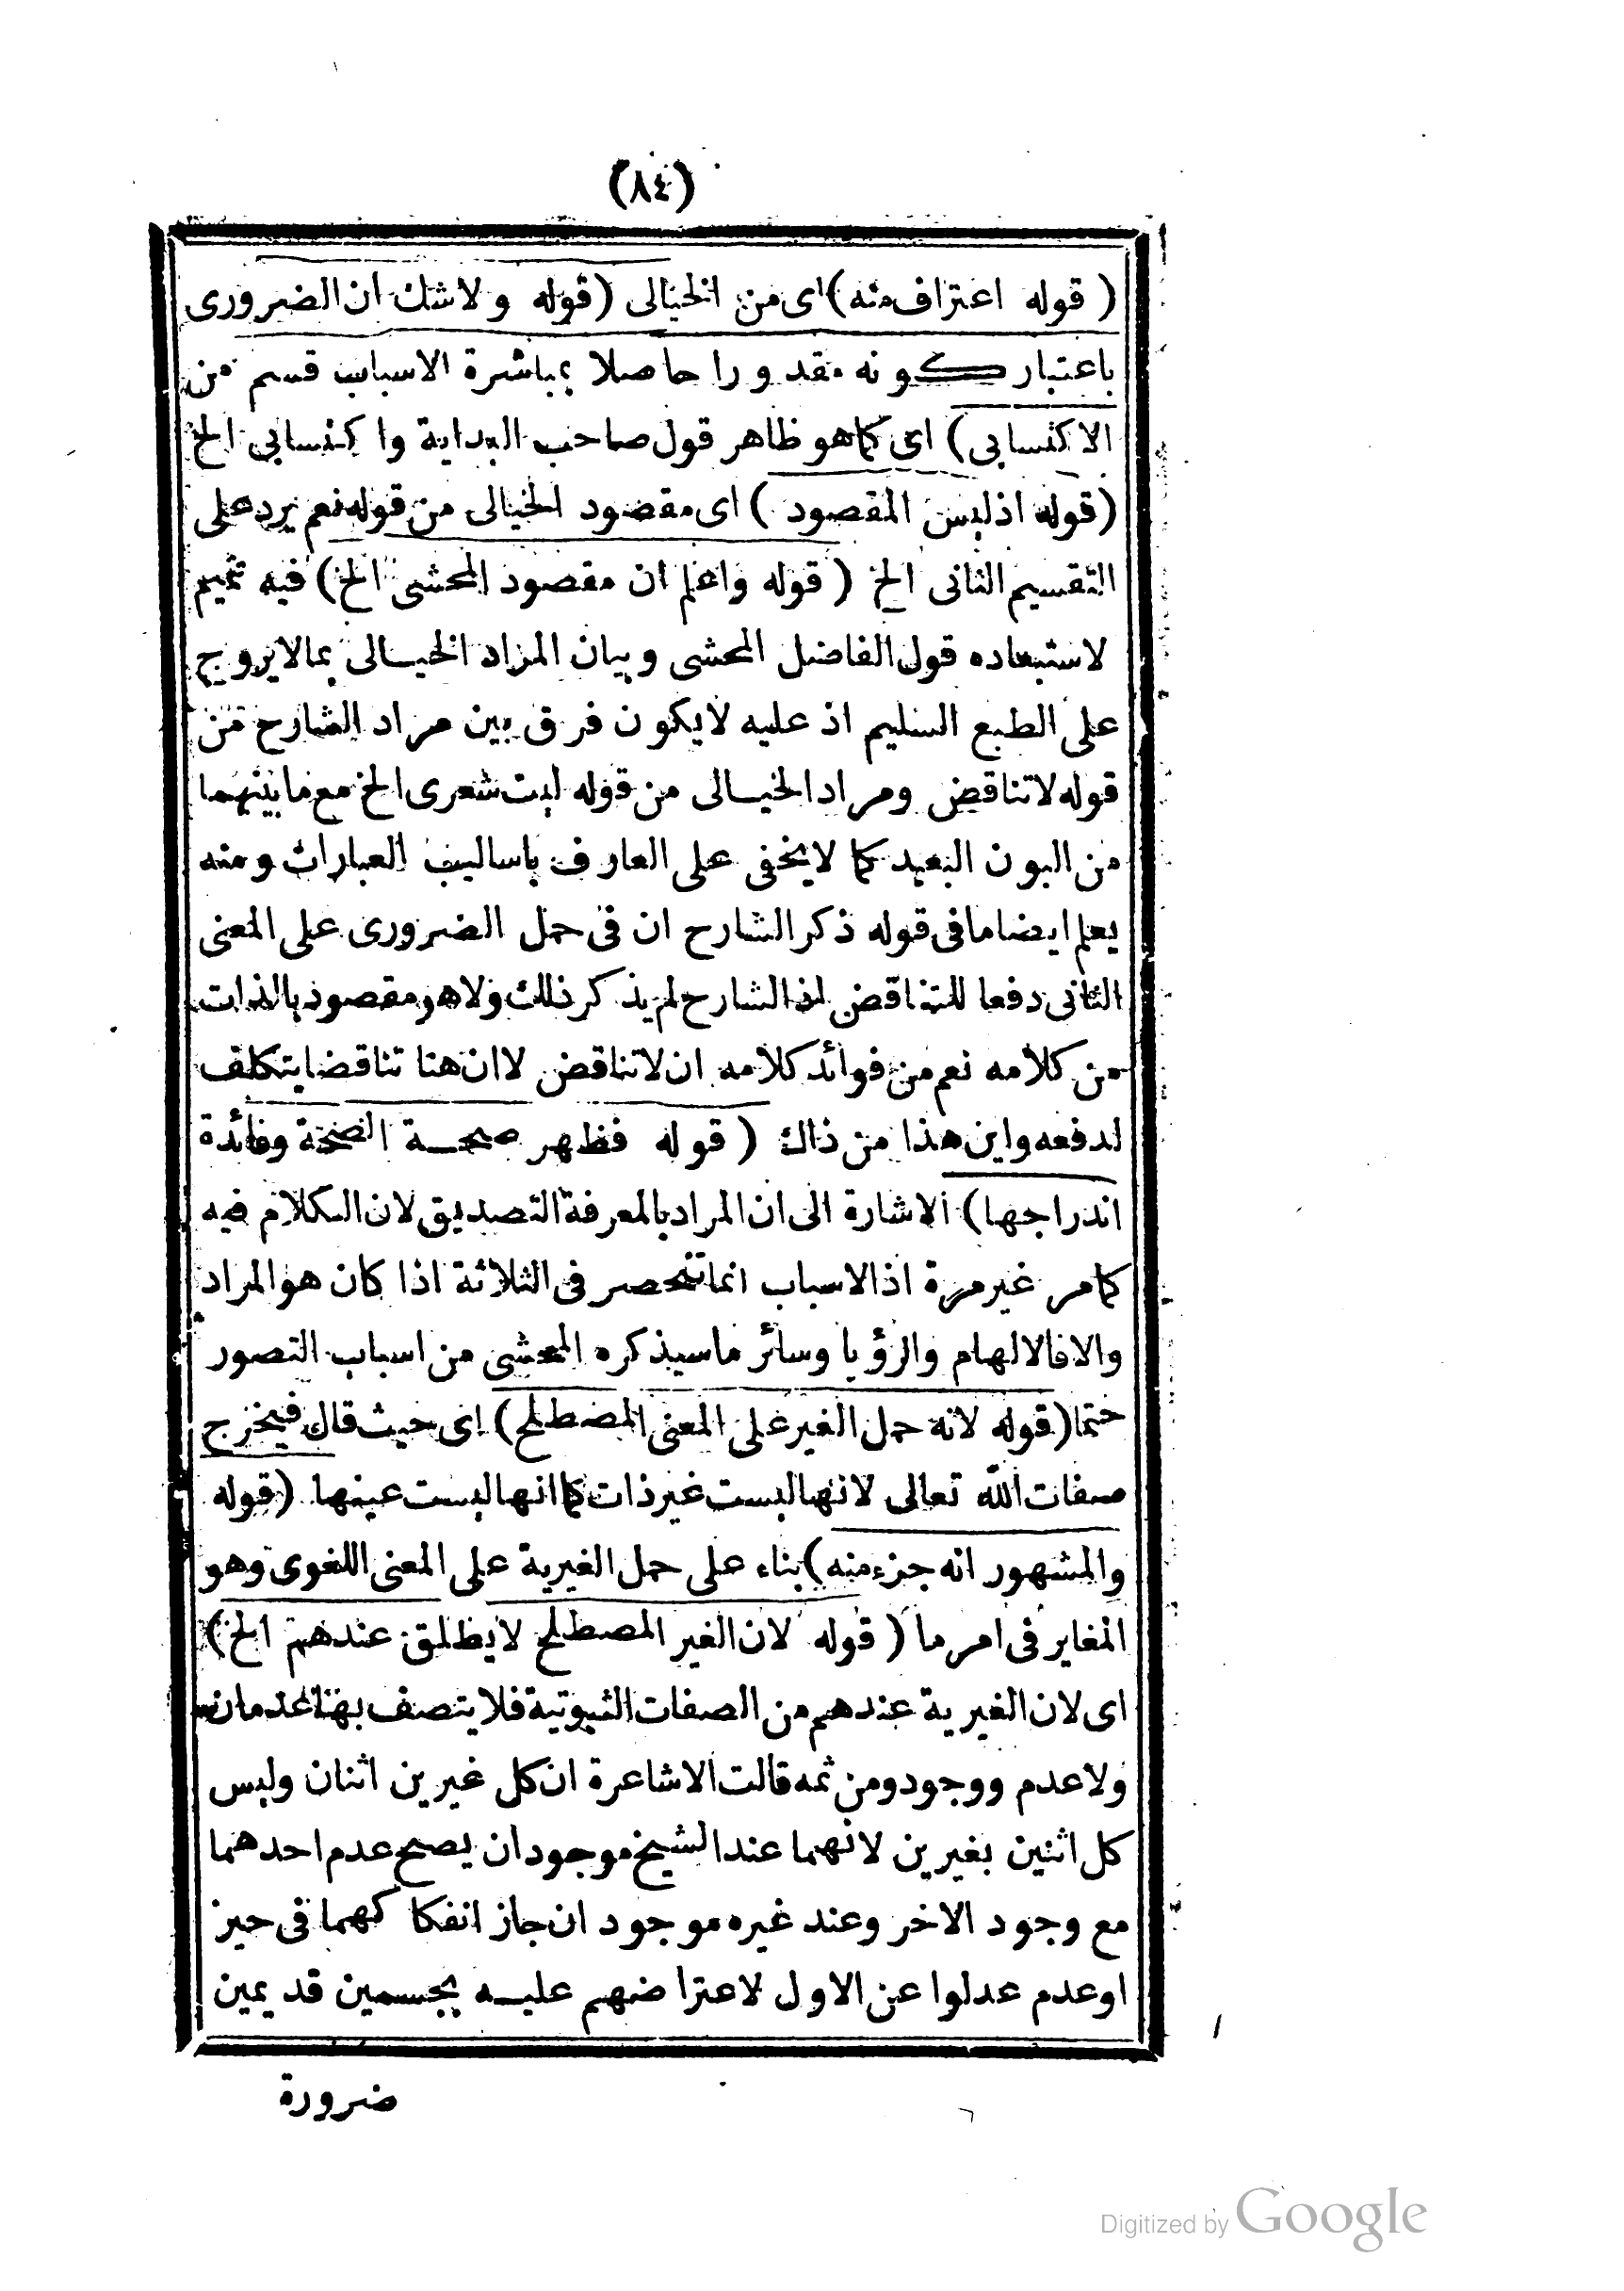 (٨٤)
( قوله اعتراف منه) اى من الخيالى (قوله ولاشك ان الضرورى
باعتبار كونه مقدورا حاصلا بمباشرة الاسباب قسم من
الاكتسابى) اى كما هو ظاهر قول صاحب البداية واكتسابى الخ
(قوله اذليس المقصود ) اى مقصود الخيالى من قوله نعم يرد على
التقسيم الثانى الخ ( قوله واعلم ان مقصود المحشى الخ) فيه تتميم
لاستبعاده قول الفاضل المحشى وبيان المراد الخيالى بمالايروج
على الطبع السليم اذ عليه لايكون فرق بين مراد الشارح من
قوله لاتناقض ومراد الخيالى من قوله ليت شعرى الخ مع مابينهما
من البون البعيد كما لا يخفى على العارف باساليب العبارات ومنه
يعلم ايضا مافى قوله ذكر الشارح ان فى حمل الضرورى على المعنى
الثانى دفعا للتناقض اذ الشارح لم يذكر ذلك ولاهو مقصود بالذات
من كلامه نعم من فوائد كلامه ان لاتناقض لا ان هنا تناقضا يتكلف
لدفعه واين هذا من ذاك ( قوله فظهر صحة الضجة وفائدة
اندراجها) الاشارة الى ان المراد بالمعرفة التصديق لان الكلام فيه
كمامر غير مرة اذ الاسباب انما تنحصر فى الثلاثة اذا كان هو المراد
والافالالهام والرؤيا وسائر ماسيذكره المحشى من اسباب التصور
حتما (قوله لانه حمل الغير على المعنى المصطلح) اى حيث قال فيخرج
صفات الله تعالى لانها ليست غير ذات كما انها ليست عينها (قوله
والمشهور انه جزء منه) بناء على حمل الغيرية على المعنى اللغوى وهو
المغاير فى امر ما ( قوله لان الغير المصطلح لايطلق عندهم الخ)
اى لان الغيرية عندهم من الصفات الثبوتية فلا يتصف بها عدمان
ولاعدم ووجود ومن ثمه قالت الاشاعرة ان كل غيرين اثنان وليس
كل اثنين بغيرين لانهما عند الشيخ موجودان يصح عدم احدهما
مع وجود الاخر وعند غيره موجود ان جاز انفكاكهما فى حيز
اوعدم عدلوا عن الاول لاعتراضهم عليه بجسمين قديمين
ضرورة
Digitized by Google